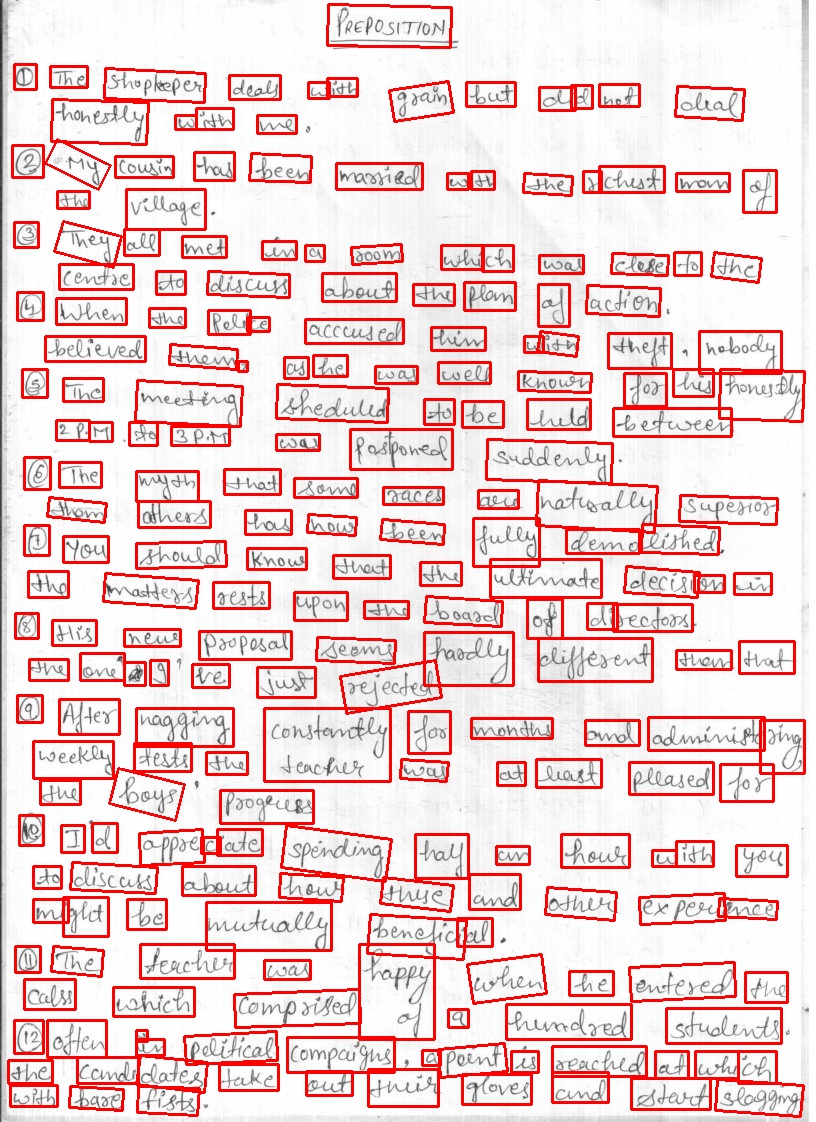 PREPOSITION
① The shopkeeper deals with grain but did not deal
honestly with me.
② My cousin has been married with the richest man of
the village.
③ They all met in a room which was close to the
centre to discuss about the plan of action.
④ When the Police acccused him with theft, nobody
believed them, as he was well known for his honestly
⑤ The meeting sheduled to be held between
2 P.M. to 3 P.M was postponed suddenly.
⑥ The myth that some races are naturally superior
than others has now been fully demolished.
⑦ You should know that the ultimate decision in
the matters rests upon the board of directors.
⑧ His new proposal seems hardly different than that
the one I've just rejected
⑨ After nagging constantly for months and administring
weekly tests the teacher was at least pleased for
the boys' progress
⑩ I'd appreciate spending half an hour with you
to discuss about how these and other experience
might be mutually beneficial.
⑪ The teacher was happy when he entered the
calss which comprised of a hundred students.
⑫ often in political compaigns, a point is reached at which
the candidates take out their gloves and start slogging
with bare fists.